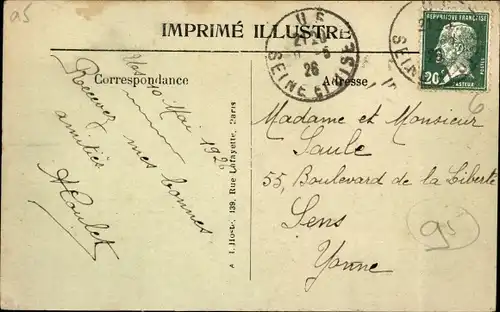 95
IMPRIMÉ ILLUSTRÉ
Correspondance
Adresse
U S
26
SEINE ET OISE
SEINE
20
PASTEUR
POSTES
10 Mai 1926
Recevez mes bonnes
amitiés
Madame et Monsieur
Saule
55, Boulevard de la Liberté
Sens
Yonne
95
6
A I. Hoste, 139, Rue Lafayette, Paris